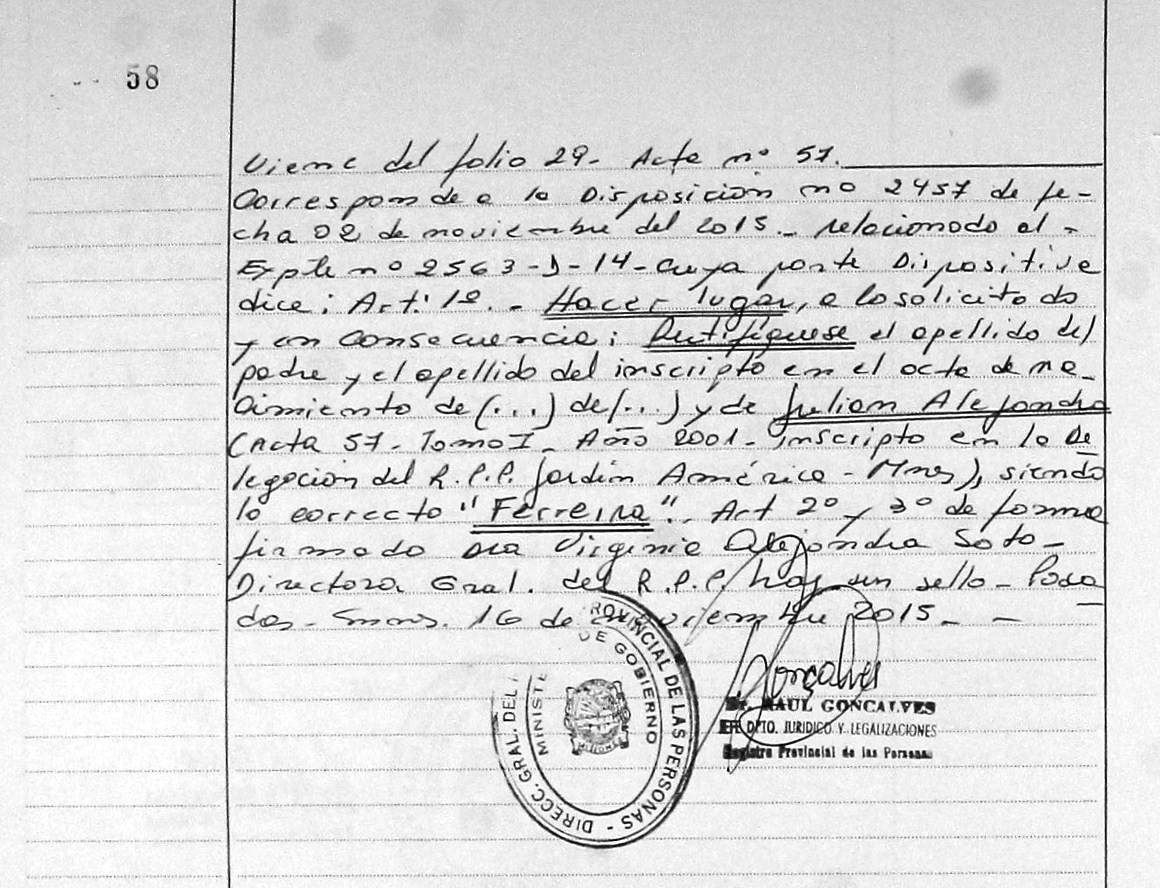 58
Viene del folio 29. Acta nº 57.
Corresponde a la Disposición nº 2457 de fe-
cha 02 de noviembre del 2015 - relacionado al -
Expte nº 2563-D-14- cuya parte Dispositiva
dice: Art: 1º. - Hacer lugar, a lo solicitado
y en consecuencia; Rectifíquese el apellido del
padre y el apellido del inscripto en el acta de na-
cimiento de (...) de (...) y de Julian Alejandro
(Acta 57- Tomo I - Año 2001- inscripto en la De
legación del R.P.P. Jardín América - Mnes), siendo
lo correcto "Ferreira". Art 2º y 3º de forma
firmado Dra Virginia Alejandra Soto -
Directora Gral. del R.P.P. hay un sello - Posa
das - Mnes. 16 de noviembre 2015 - -
DIRECC. GRAL. DEL PROVINCIAL DE LAS PERSONAS -
MINISTE DE GOBIERNO
Goncalves
Dr. RAUL GONCALVES
JEFE DPTO. JURIDICO Y LEGALIZACIONES
Registro Provincial de las Personas